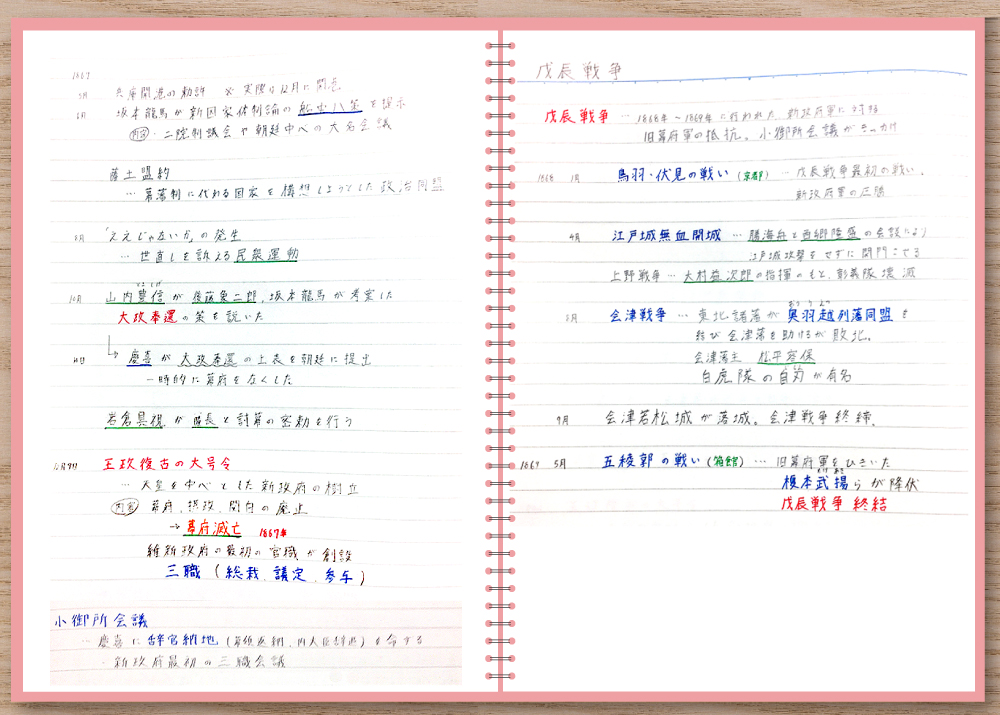 1867
5月 兵庫開港の勅許 ※ 実際は12月に開港
6月 坂本龍馬が新国家体制論の船中八策を提示
内容 二院制議会や朝廷中心の大名会議
薩土盟約
… 幕藩制に代わる国家を構想しようとした政治同盟
8月 「ええじゃないか」の発生
… 世直しを訴える民衆運動
10月 山内豊信が後藤象二郎、坂本龍馬が考案した
大政奉還の策を説いた
慶喜が大政奉還の上表を朝廷に提出
一時的に幕府をなくした
岩倉具視が薩長と討幕の密勅を行う
12月9日 王政復古の大号令
… 天皇を中心とした新政府の樹立
内容 幕府、摂政、関白の廃止
→ 幕府滅亡 1867年
維新政府の最初の官職が創設
三職(総裁、議定、参与)
小御所会議
… 慶喜に辞官納地(幕領返納、内大臣辞退)を命ずる
・新政府最初の三職会議
戊辰戦争
戊辰戦争 … 1868年~1869年に行われた、新政府軍に対する
旧幕府軍の抵抗。小御所会議がきっかけ
1868 1月 鳥羽・伏見の戦い(京都) … 戊辰戦争最初の戦い。
新政府軍の圧勝
4月 江戸城無血開城 … 勝海舟と西郷隆盛の会談により
江戸城攻撃をせずに開門させる
上野戦争 … 大村益次郎の指揮のもと、彰義隊壊滅
会津戦争 … 東北諸藩が奥羽越列藩同盟を
おううえつ
結び会津藩を助けるが敗北。
会津藩主 松平容保
白虎隊の自刃が有名
9月 会津若松城が落城。会津戦争終結。
1869 5月 五稜郭の戦い(箱館) … 旧幕府軍をひきいた
榎本武揚らが降伏
戊辰戦争終結